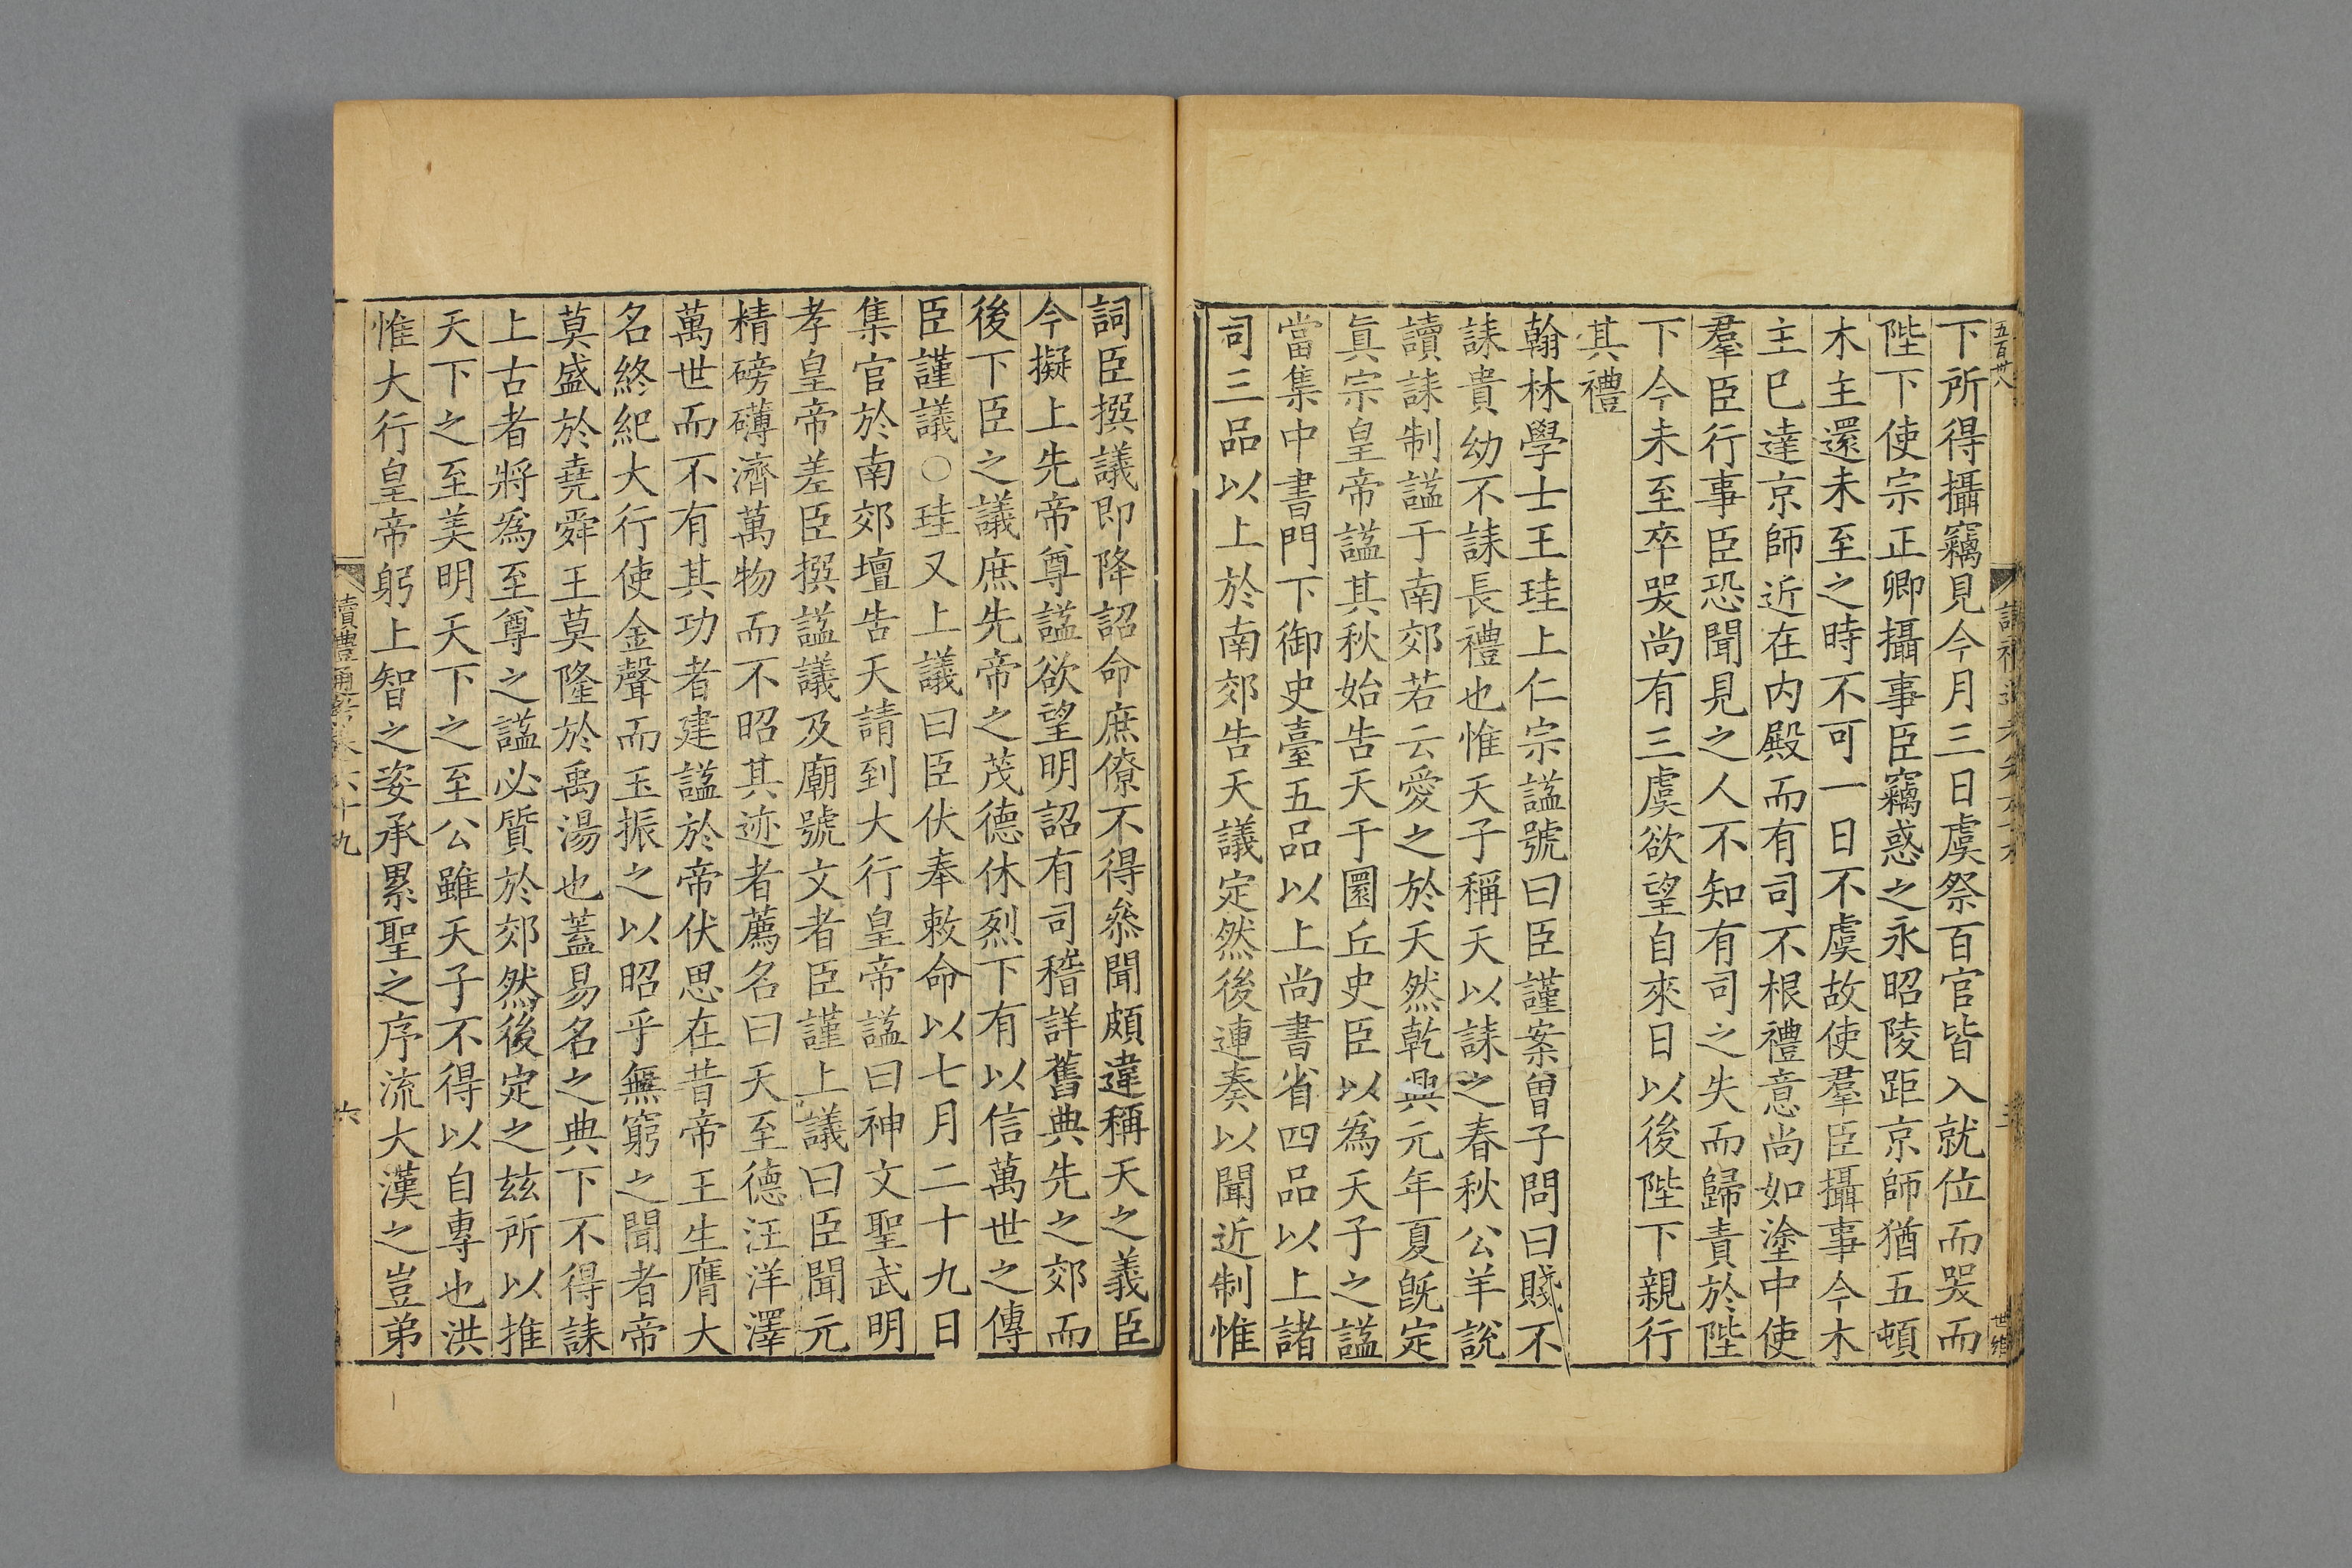 五百卅八
下所得攝竊見今月三日虞祭百官皆入就位而哭而
陛下使宗正卿攝事臣竊惑之永昭陵距京師猶五頓
木主還未至之時不可一日不虞故使羣臣攝事今木
主巳達京師近在内殿而有司不根禮意尚如塗中使
羣臣行事臣恐聞見之人不知有司之失而歸責於陛
下今未至卒哭尚有三虞欲望自來日以後陛下親行
其禮
翰林學士王珪上仁宗諡號曰臣謹案曾子問曰賤不
誄貴幼不誄長禮也惟天子稱天以誄之春秋公羊說
讀誄制諡于南郊若云愛之於天然乾興元年夏旣定
眞宗皇帝諡其秋始告天于圜丘史臣以為天子之諡
當集中書門下御史臺五品以上尚書省四品以上諸
司三品以上於南郊告天議定然後連奏以聞近制惟
詞臣撰議即降詔命庶僚不得叅聞頗違稱天之義臣
今擬上先帝尊諡欲望明詔有司稽詳舊典先之郊而
後下臣之議庶先帝之茂德休烈下有以信萬世之傳
臣謹議○珪又上議曰臣伏奉敕命以七月二十九日
集官於南郊壇告天請到大行皇帝諡曰神文聖武明
孝皇帝差臣撰諡議及廟號文者臣謹上議曰臣聞元
精磅礴濟萬物而不昭其迹者薦名曰天至德汪洋澤
萬世而不有其功者建諡於帝伏思在昔帝王生膺大
名終紀大行使金聲而玉振之以昭乎無窮之聞者帝
莫盛於堯舜王莫隆於禹湯也蓋易名之典下不得誄
上古者將為至尊之諡必質於郊然後定之茲所以推
天下之至美明天下之至公雖天子不得以自專也洪
惟大行皇帝躬上智之姿承累聖之序流大漢之豈弟
讀禮通考卷六十九
六